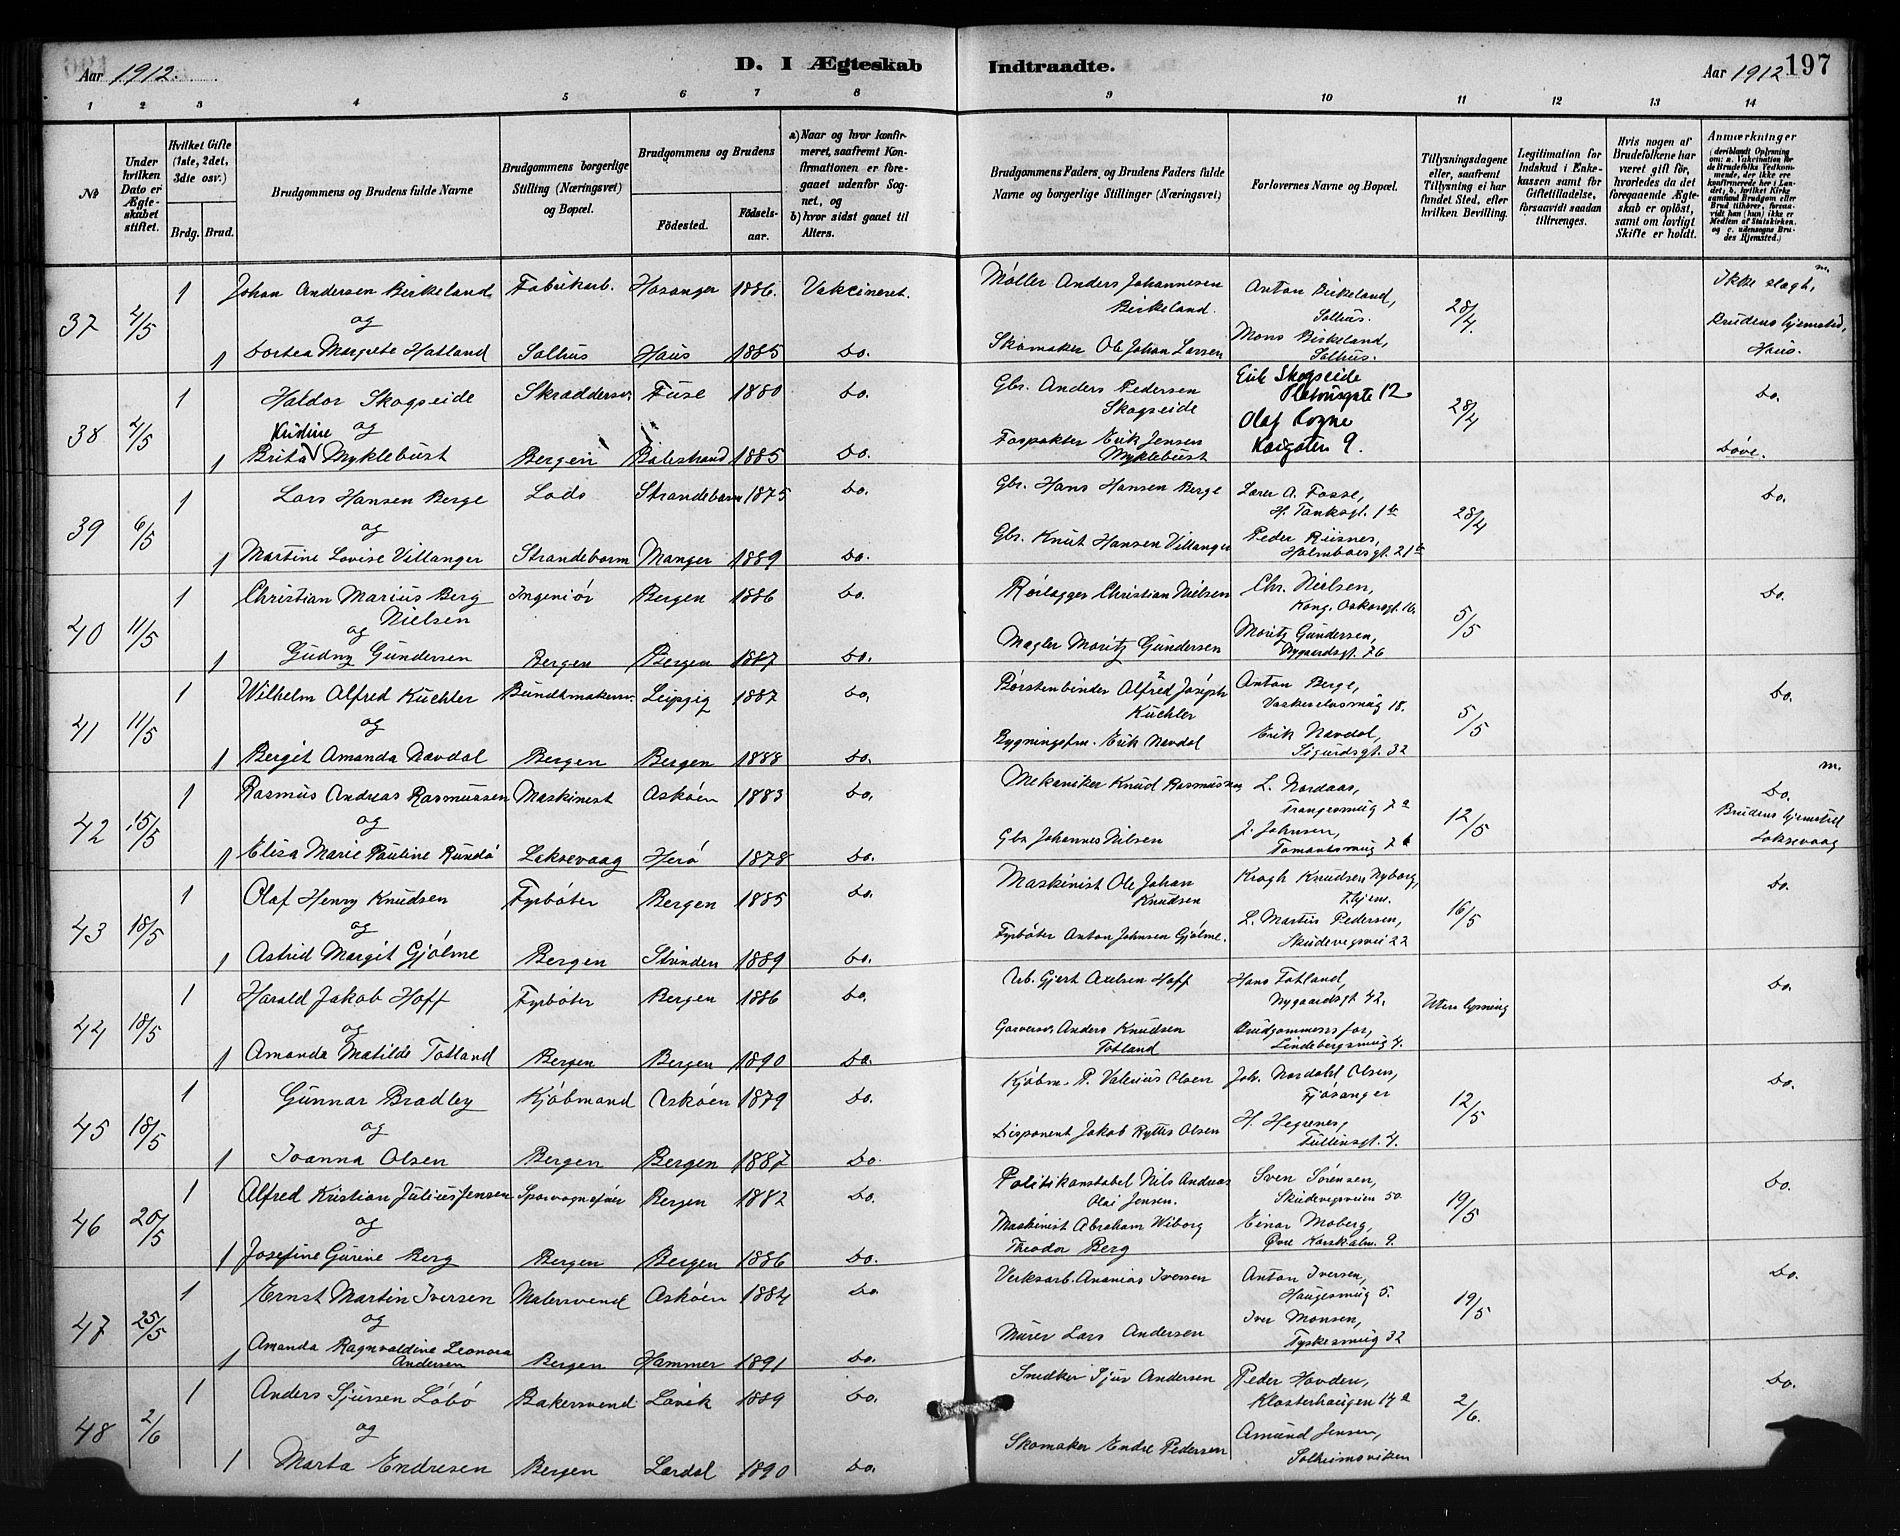 Aar 1912. D. I Ægteskab Indtraadte. Aar 1912 197
1 2 3 4 5 6 7 8 9 10 11 12 13 14
No
Under hvilken Dato er Ægteskabet stiftet.
Hvilket Gifte (1ste, 2det, 3die osv.)
Brdg. Brud.
Brudgommens og Brudens fulde Navne
Brudgommens borgerlige Stilling (Næringsvei) og Bopæl.
Brudgommens og Brudens
Fødested. Fødselsaar.
a) Naar og hvor konfirmeret, saafremt Konfirmationen er foregaaet udenfor Sognet, og
b) hvor sidst gaaet til Alters.
Brudgommens Faders, og Brudens Faders fulde Navne og borgerlige Stillinger (Næringsvei)
Forlovernes Navne og Bopæl.
Tillysningsdagene eller, saafremt Tillysning ei har fundet Sted, efter hvilken Bevilling.
Legitimation for Indskud i Enkekassen samt for Giftetilladelse, forsaavidt saadan tiltrænges.
Hvis nogen af Brudefolkene har været gift før, hvorledes da det foregaaende Ægteskab er opløst, samt om lovligt Skifte er holdt.
Anmærkninger
37 4/5 1 Johan Andersen Birkeland Fabrikarb. Hosanger 1886. Vakcineret. Møller Anders Johannesen Birkeland. Anton Birkeland, Salhus. 28/4 Ikke slægt, m.
og
1 Dortea Margrete Hatland Salhus Haus 1885 Do. Skomaker Ole Johan Larsen Mons Birkeland, Salhus. Brudens hjemsted, Haus.
38 4/5 1 Haldor Skogseide Skræddersv. Fuse 1880 Do. Gbr. Anders Pedersen Skogseide Erik Skogseide 12 28/4 Do.
Kristine og
1 Brita Myklebust Bergen Balestrand 1885 Do. Erik Jensen Myklebust Olaf Rogne 9. Døve.
39 6/5 1 Lars Hansen Berge Lods Strandebarm 1875 Do. Gbr. Hans Hansen Berge A. Fosse, H. Tanksgt. 1 28/4 Do.
og
1 Martine Lovise Villanger Strandebarm Manger 1889 Do. Gbr. Knut Hansen Villanger Peder Riisnes, Holmboesgt. 21
40 11/5 1 Christian Marius Berg Nielsen Ingeniør Bergen 1886 Do. Rørlægger Christian Nielsen Chr. Nielsen, Kong Oskarsgt. 16. 5/5 Do.
og
1 Gudny Gundersen Bergen Bergen 1887 Do. Mægler Moritz Gundersen Moritz Gundersen, Nygaardsgt. 76
41 11/5 1 Wilhelm Alfred Kuchler Bundtmakersv. Leipzig 1887 Do. Børstenbinder Alfred Joseph Kuchler Anton Berge, 18. 5/5 Do.
og
1 Bergit Amanda Navdal Bergen Bergen 1888 Do. Bygningsfm. Erik Navdal Erik Navdal, Sigurdsgt. 32
42 15/5 1 Rasmus Andreas Rasmussen Maskinist Askøen 1883 Do. Mekaniker Knud Rasmussen L. Nordaas, 7a 12/5 Do. m.
og
1 Elisa Marie Pauline Rundø Laksevaag Herø 1878 Do. Gbr Johannes Nilsen J. Johnsen, Brudens hjemsted Laksevaag
43 18/5 1 Olaf Henry Knudsen Fyrbøter Bergen 1885 Do. Maskinist Ole Johan Knudsen Krogh Knudsen Nyborg, 16/5 Do.
og
1 Astrid Margit Gjølme Bergen Strinden 1889 Do. Fyrbøter Anton Johnsen Gjølme. L. Martin Pedersen, Skudevigsvei 22
44 18/5 1 Harald Jakob Hoff Fyrbøter Bergen 1886 Do. Arb. Gjert Axelsen Hoff Hans Totland, Nygaardsgt 42. Uten lysning Do.
og
1 Amanda Matilde Totland Bergen Bergen 1890 Do. Garversv. Anders Knudsen Totland Brudgommens far, Lindebergsmug 4.
45 18/5 1 Gunnar Bradley Kjøbmand Askøen 1879 Do. Kjøbm. P. Valerius Olsen Joh. Nordahl Olsen, Fjøsanger 12/5 Do.
og
1 Joanna Olsen Bergen Bergen 1887 Do. Disponent Jakob Olsen H. Hegrenes, Tullinsgt. 4.
46 20/5 1 Alfred Kristian Julius Jensen Sporvognsfører Bergen 1882 Do. Politikonstabel Nils Andreas Olai Jensen. Sven Sørensen, Skudevigsveien 50. 19/5 Do.
og
1 Josefine Gurine Berg Bergen Bergen 1886 Do. Maskinist Abraham Wiborg Theodor Berg Einar Moberg, Øvre Korskalm. 9.
47 25/5 1 Ernst Martin Iversen Malersvend Askøen 1884 Do. Verksarb. Ananias Iversen Anton Iversen, Haugesmug 5. 19/5 Do.
og
1 Amanda Ragnvaldine Leonora Andersen Bergen Hammer 1891 Do. Murer Lars Andersen Iver Monsen, Tyskesmug 32
48 2/6 1 Anders Sjursen Løbø Bakersvend Lavik 1889 Do. Snedker Sjur Andersen Peder Hovden, Klosterhaugen 14a 2/6. Do.
og
1 Marta Endresen Bergen Lærdal 1890 Do. Skomaker Endre Pedersen Amund Jensen, Solheimsviken